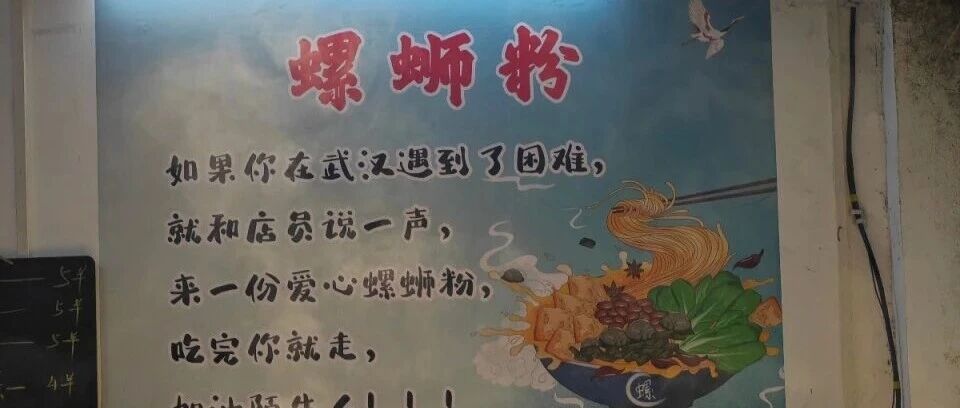 螺蛳粉
如果你在武汉遇到了困难，
就和店员说一声，
来一份爱心螺蛳粉，
吃完你就走，
加油陌生人！！！
螺
5半
5半
5半
4半